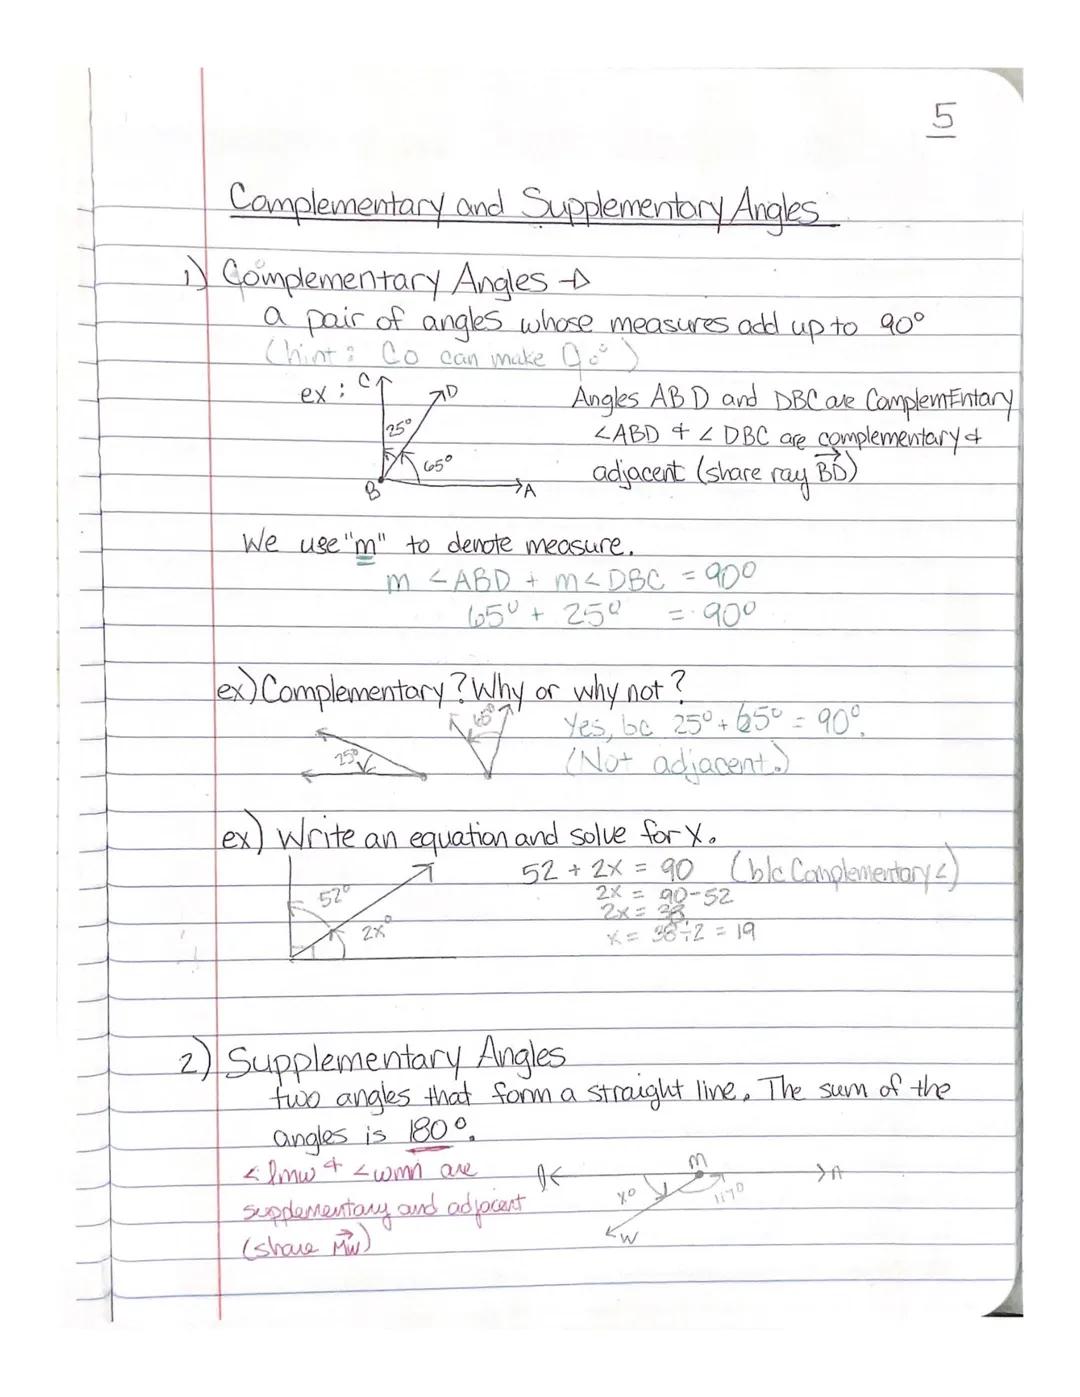 5
Complementary and Supplementary Angles
1) Complementary Angles →
a pair of angles whose measures add up to 90°
(hint: Co can make 90°)
ex: C D
25°
65°
B A
Angles ABD and DBC are ComplemEntary
<ABD + < DBC are complementary +
adjacent (share ray BD)
We use "m" to denote measure.
m <ABD + m<DBC = 90°
65° + 25° = 90°
ex) Complementary? Why or why not?
25° 65°
Yes, bc 25° + 65° = 90°.
(Not adjacent.)
ex) Write an equation and solve for X.
52°
2x°
52 + 2x = 90 (b/c Complementary <)
2x = 90-52
2x = 38
x = 38÷2 = 19
2) Supplementary Angles
two angles that form a straight line. The sum of the
angles is 180°.
<lmw + <wmn are
supplementary and adjacent
(share MW)
l m n
x° 117°
W